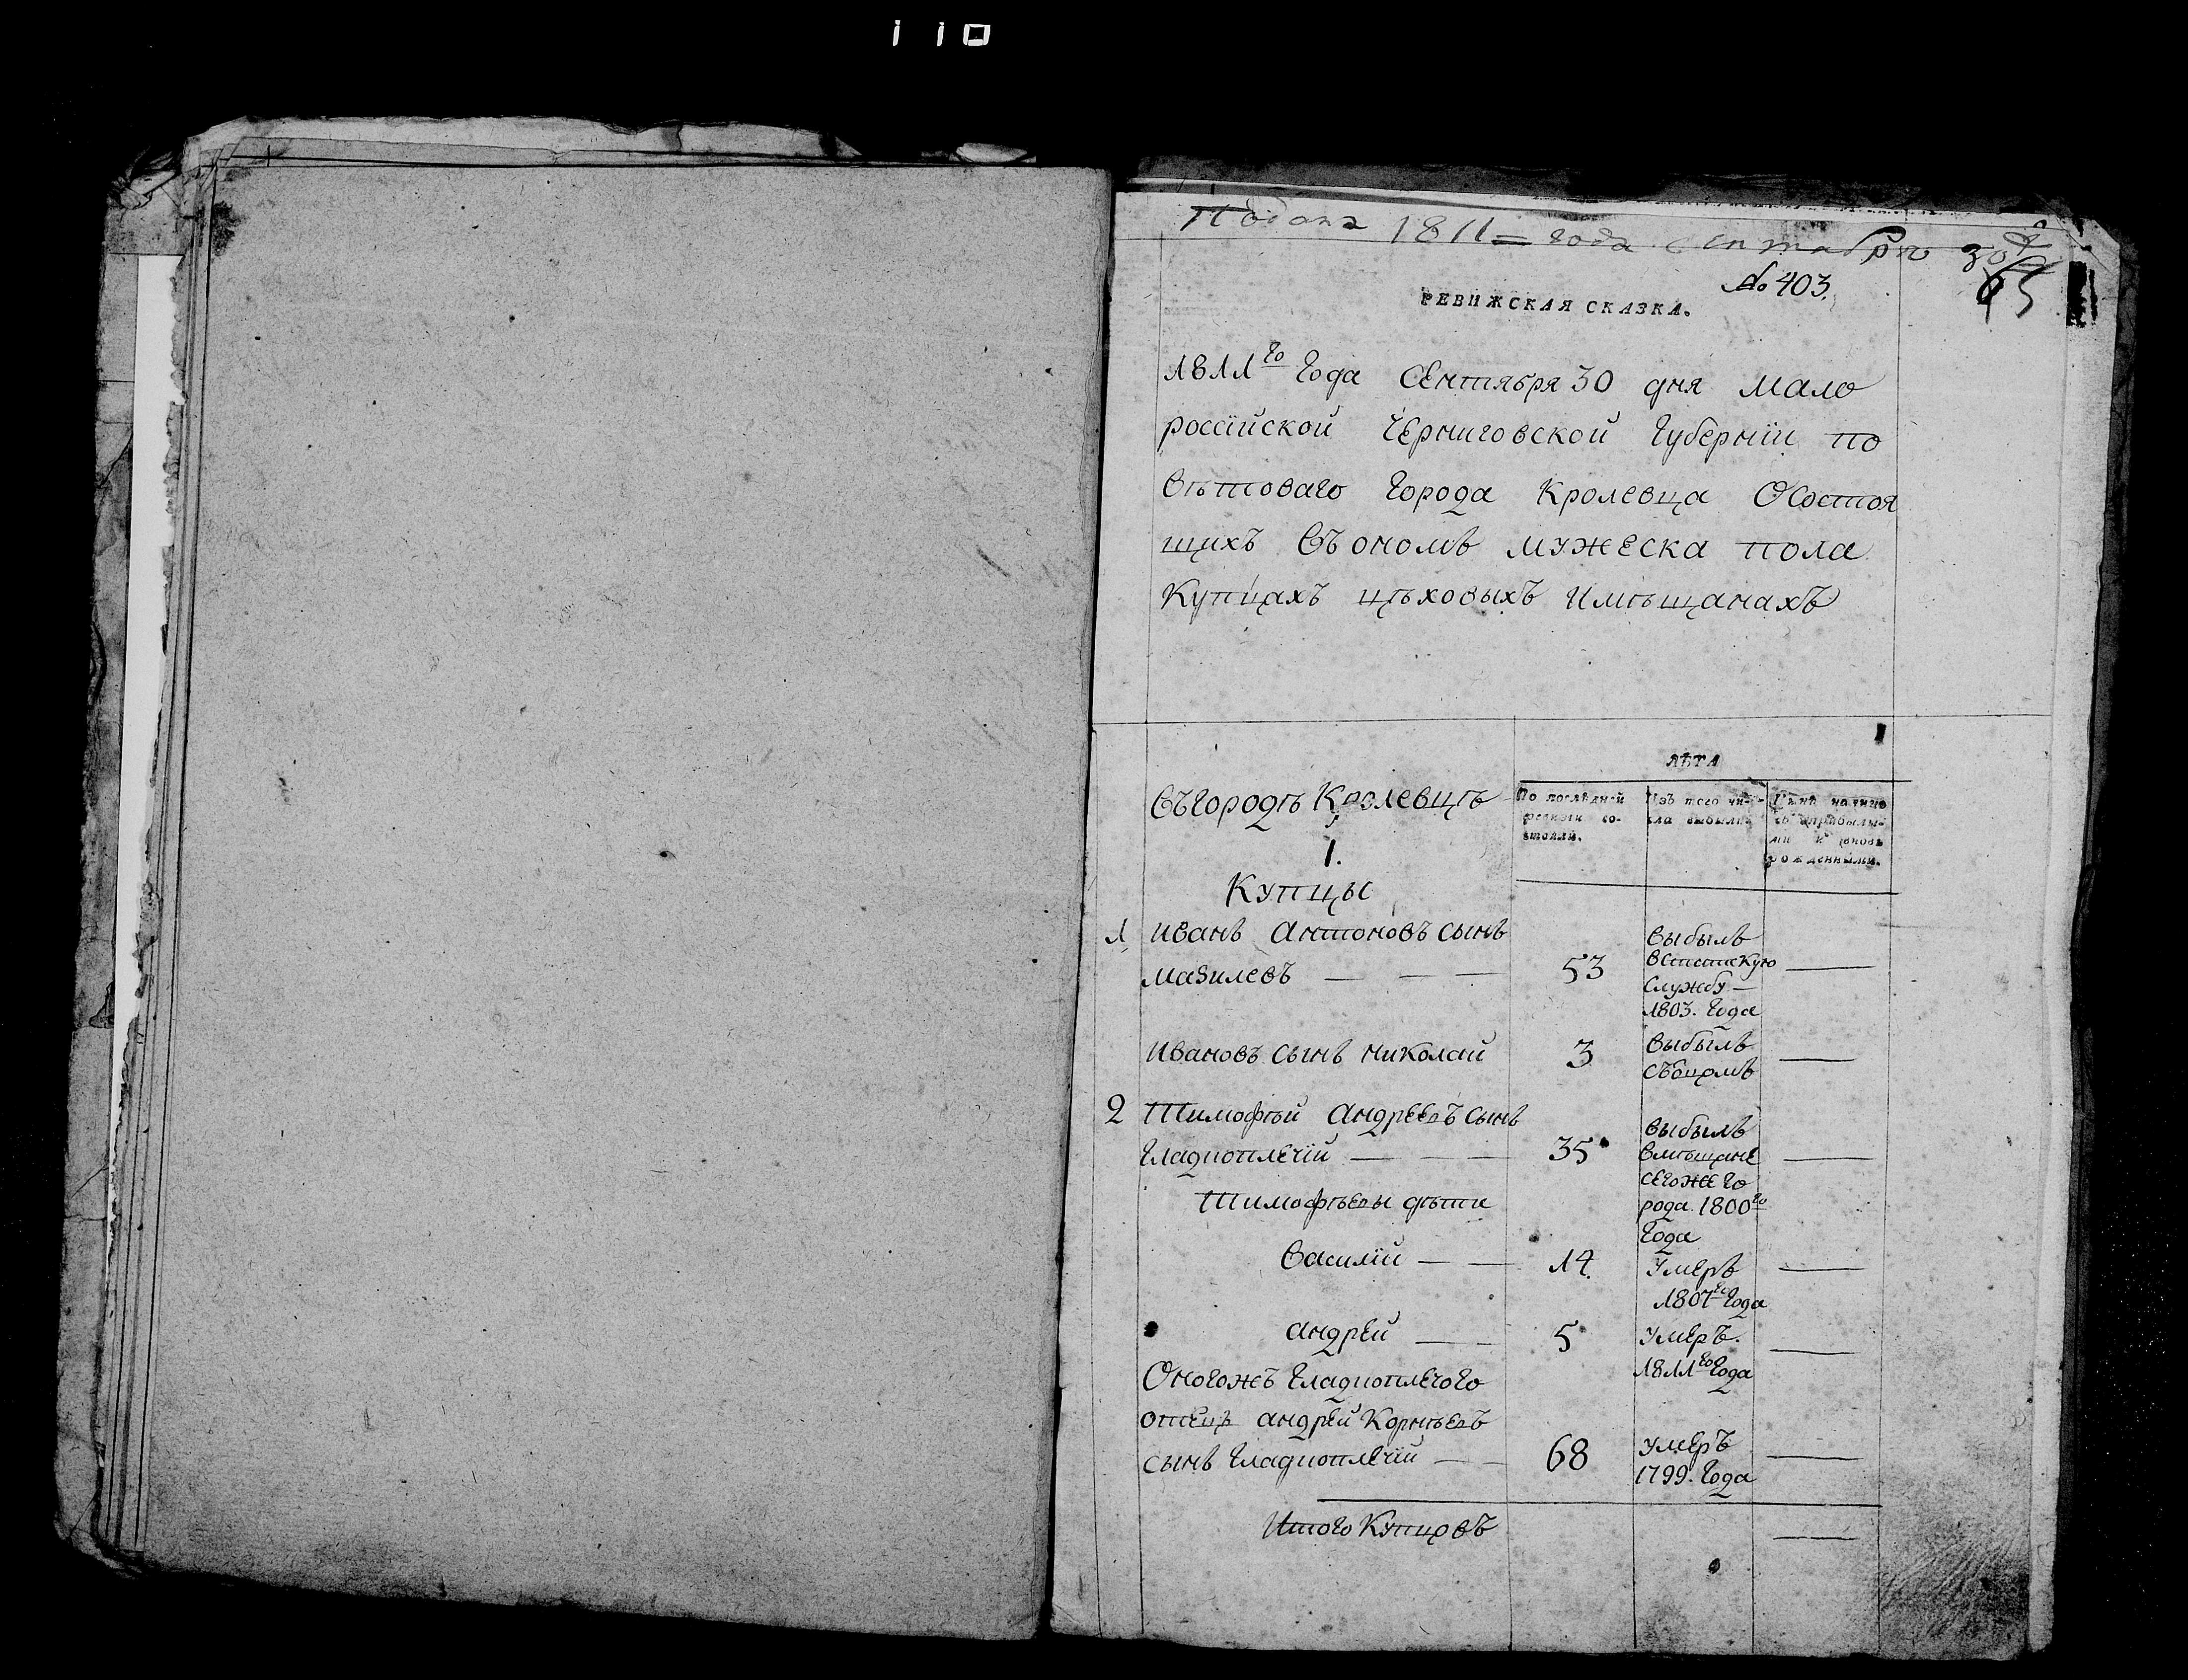 110
Подана 1811 года Сентября 30 д
65
№ 403.
РЕВИЖСКАЯ СКАЗКА.
1811го Года Сентября 30 дня Мало
россійской Черниговской Губерніи по
вѣтоваго Города Кролевца О Состоя
щихъ въ ономъ мужеска пола
Купцахъ цѣховыхъ и мѣщанахъ
1
ЛѢТА
Въ городѣ Кролевцѣ
По послѣдней ревизіи состояли.
Изъ того числа выбыло.
Нынѣ на лицо съ прибылыми и вновь рожденными.
1.
Купцы
1 Иванъ Антоновъ сынъ
Мазилевъ — — — 53 Выбылъ в Статскую Службу — 1803. Года —
Ивановъ сынъ Николай 3 Выбылъ съ оцомъ —
2 Тимофѣй Андреевъ сынъ
Гладкоплечій — — — 35 Выбылъ в мѣщане сегоже города 1800го Года —
Тимофѣевы дѣти
Василій — — 14. Умеръ 1807го Года —
Андрей — 5 Умеръ. 1811го Года —
Оногожъ Гладкоплечого
отецъ Андрей Корнѣевъ
сынъ Гладкоплечій — — 68 Умеръ 1799. Года —
Итого Купцовъ —